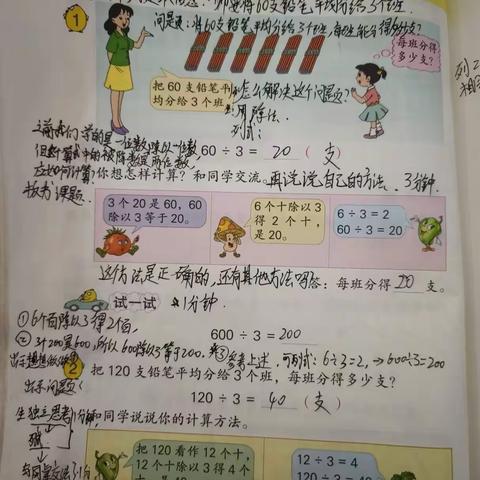 ①
问题是:将60支铅笔平均分给3个班,每班能分得多少支?
每班分得
多少支?
把 60 支铅笔平
均分给 3 个班
怎么解决这个问题?
用除法.
列式:
之前我们学的是一位数除以一位数
但这个算式中的被除数是两位数,
应如何计算?
板书课题.
60 ÷ 3 = 20 (支)
你想怎样计算?和同学交流。再说说自己的方法. 3分钟.
3 个 20 是 60,60
除以 3 等于 20。
6 个十除以 3
得 2 个十,
是 20。
6 ÷ 3 = 2
60 ÷ 3 = 20
这个方法是正确的,还有其他方法吗?
答:每班分得 20 支。
试一试 1分钟.
①6个百除以3得2个百,
600 ÷ 3 = 200
②3个200是600,所以600除以3等于200.
③参考上述,可列式:6÷3=2,→600÷3=200
出示想想做做
② 把 120 支铅笔平均分给 3 个班,每班分得多少支?
出示问题
120 ÷ 3 = 40 (支)
生独立思考1分钟
和同学说说你的计算方法。
把 120 看作 12 个十,
12 个十除以 3 得 4 个
12 ÷ 3 = 4